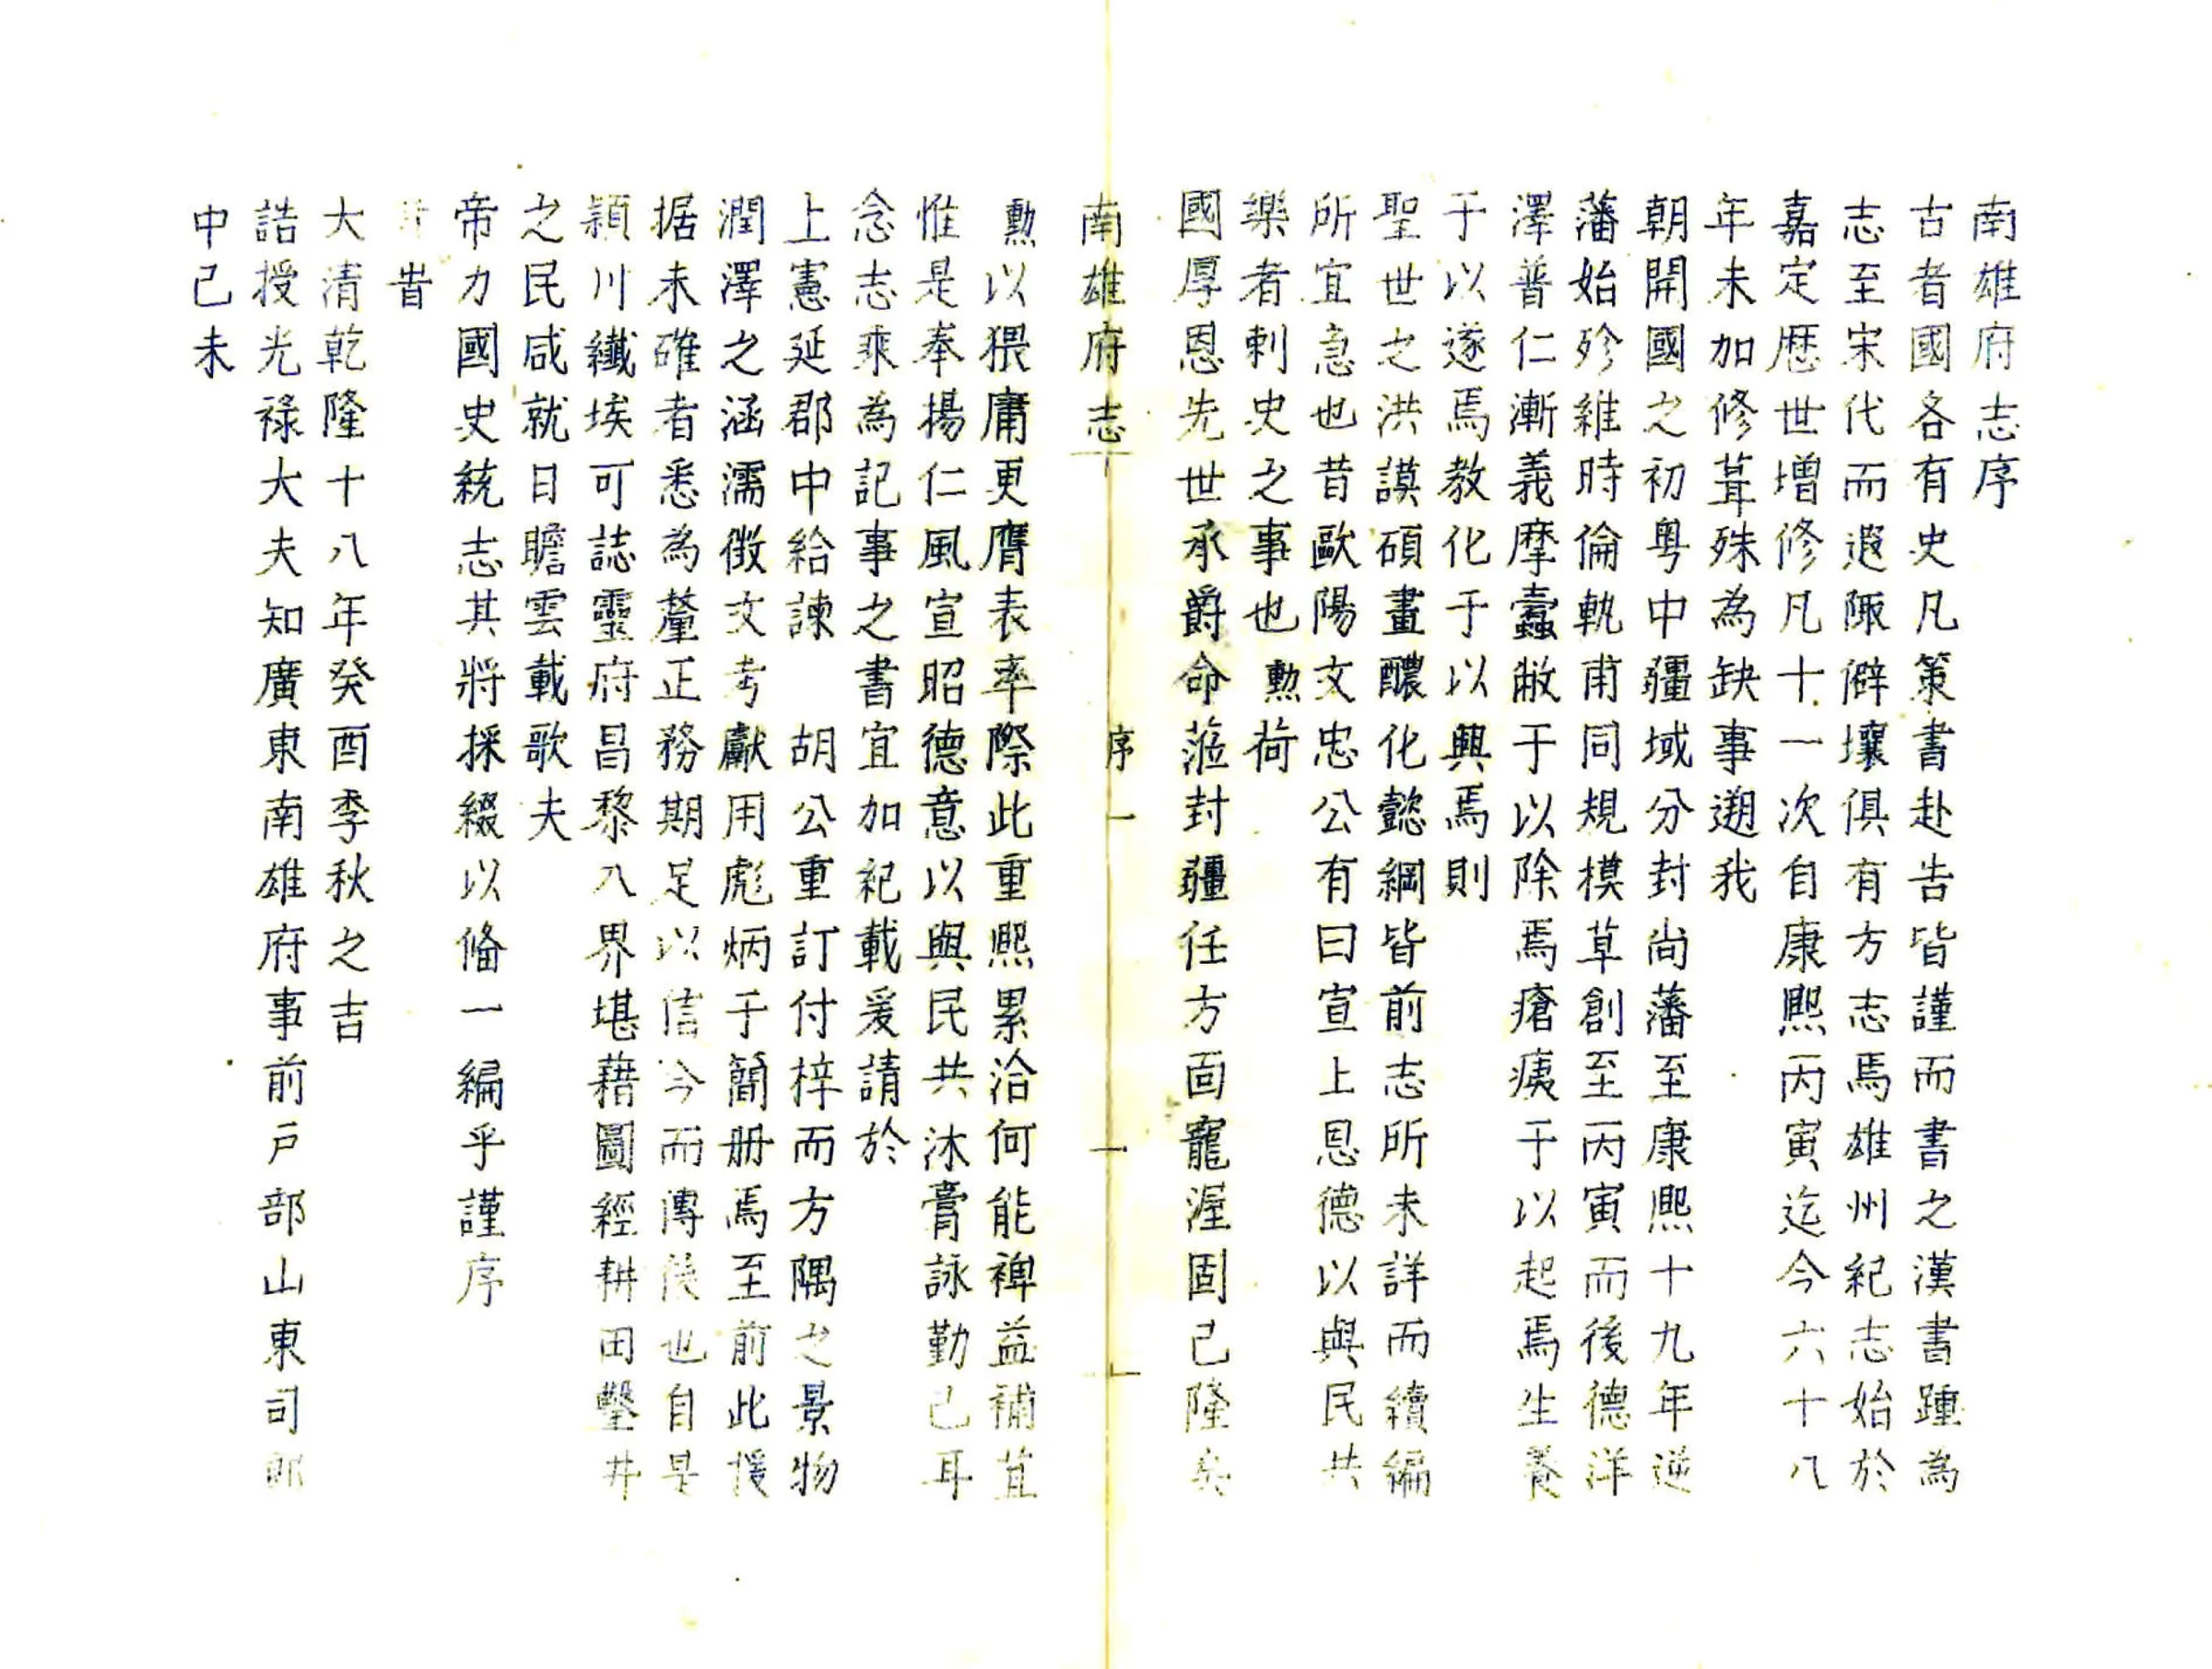 南雄府志序
古者國各有史凡策書赴告皆謹而書之漢書踵為
志至宋代而遐陬僻壤俱有方志焉雄州紀志始於
嘉定歷世增修凡十一次自康熙丙寅迄今六十八
年未加修葺殊為缺事遡我
朝開國之初粵中疆域分封尚藩至康熙十九年逆
藩始殄維時倫軌甫同規模草創至丙寅而後德洋
澤普仁漸義摩蠹敝于以除焉瘡痍于以起焉生養
于以遂焉教化于以興焉則
聖世之洪謨碩畫醲化懿綱皆前志所未詳而續編
所宜急也昔歐陽文忠公有曰宣上恩德以與民共
樂者刺史之事也勲荷
國厚恩先世承爵命蒞封疆任方面寵渥固己隆矣
南雄府志 序 一 一
勲以猥庸更膺表率際此重熙累洽何能裨益補苴
惟是奉揚仁風宣昭德意以與民共沐膏詠勤己耳
念志乘為記事之書宜加紀載爰請於
上憲延郡中給諫 胡公重訂付梓而方隅之景物
潤澤之涵濡徴文考獻用彪炳于簡册焉至前此援
据未確者悉為釐正務期足以信今而傳後也自是
潁川纖埃可誌靈府昌黎入界堪藉圖經耕田鑿井
之民咸就日瞻雲載歌夫
帝力國史統志其將採綴以俻一編乎謹序
旹
大清乾隆十八年癸酉季秋之吉
誥授光祿大夫知廣東南雄府事前戶部山東司郎
中己未